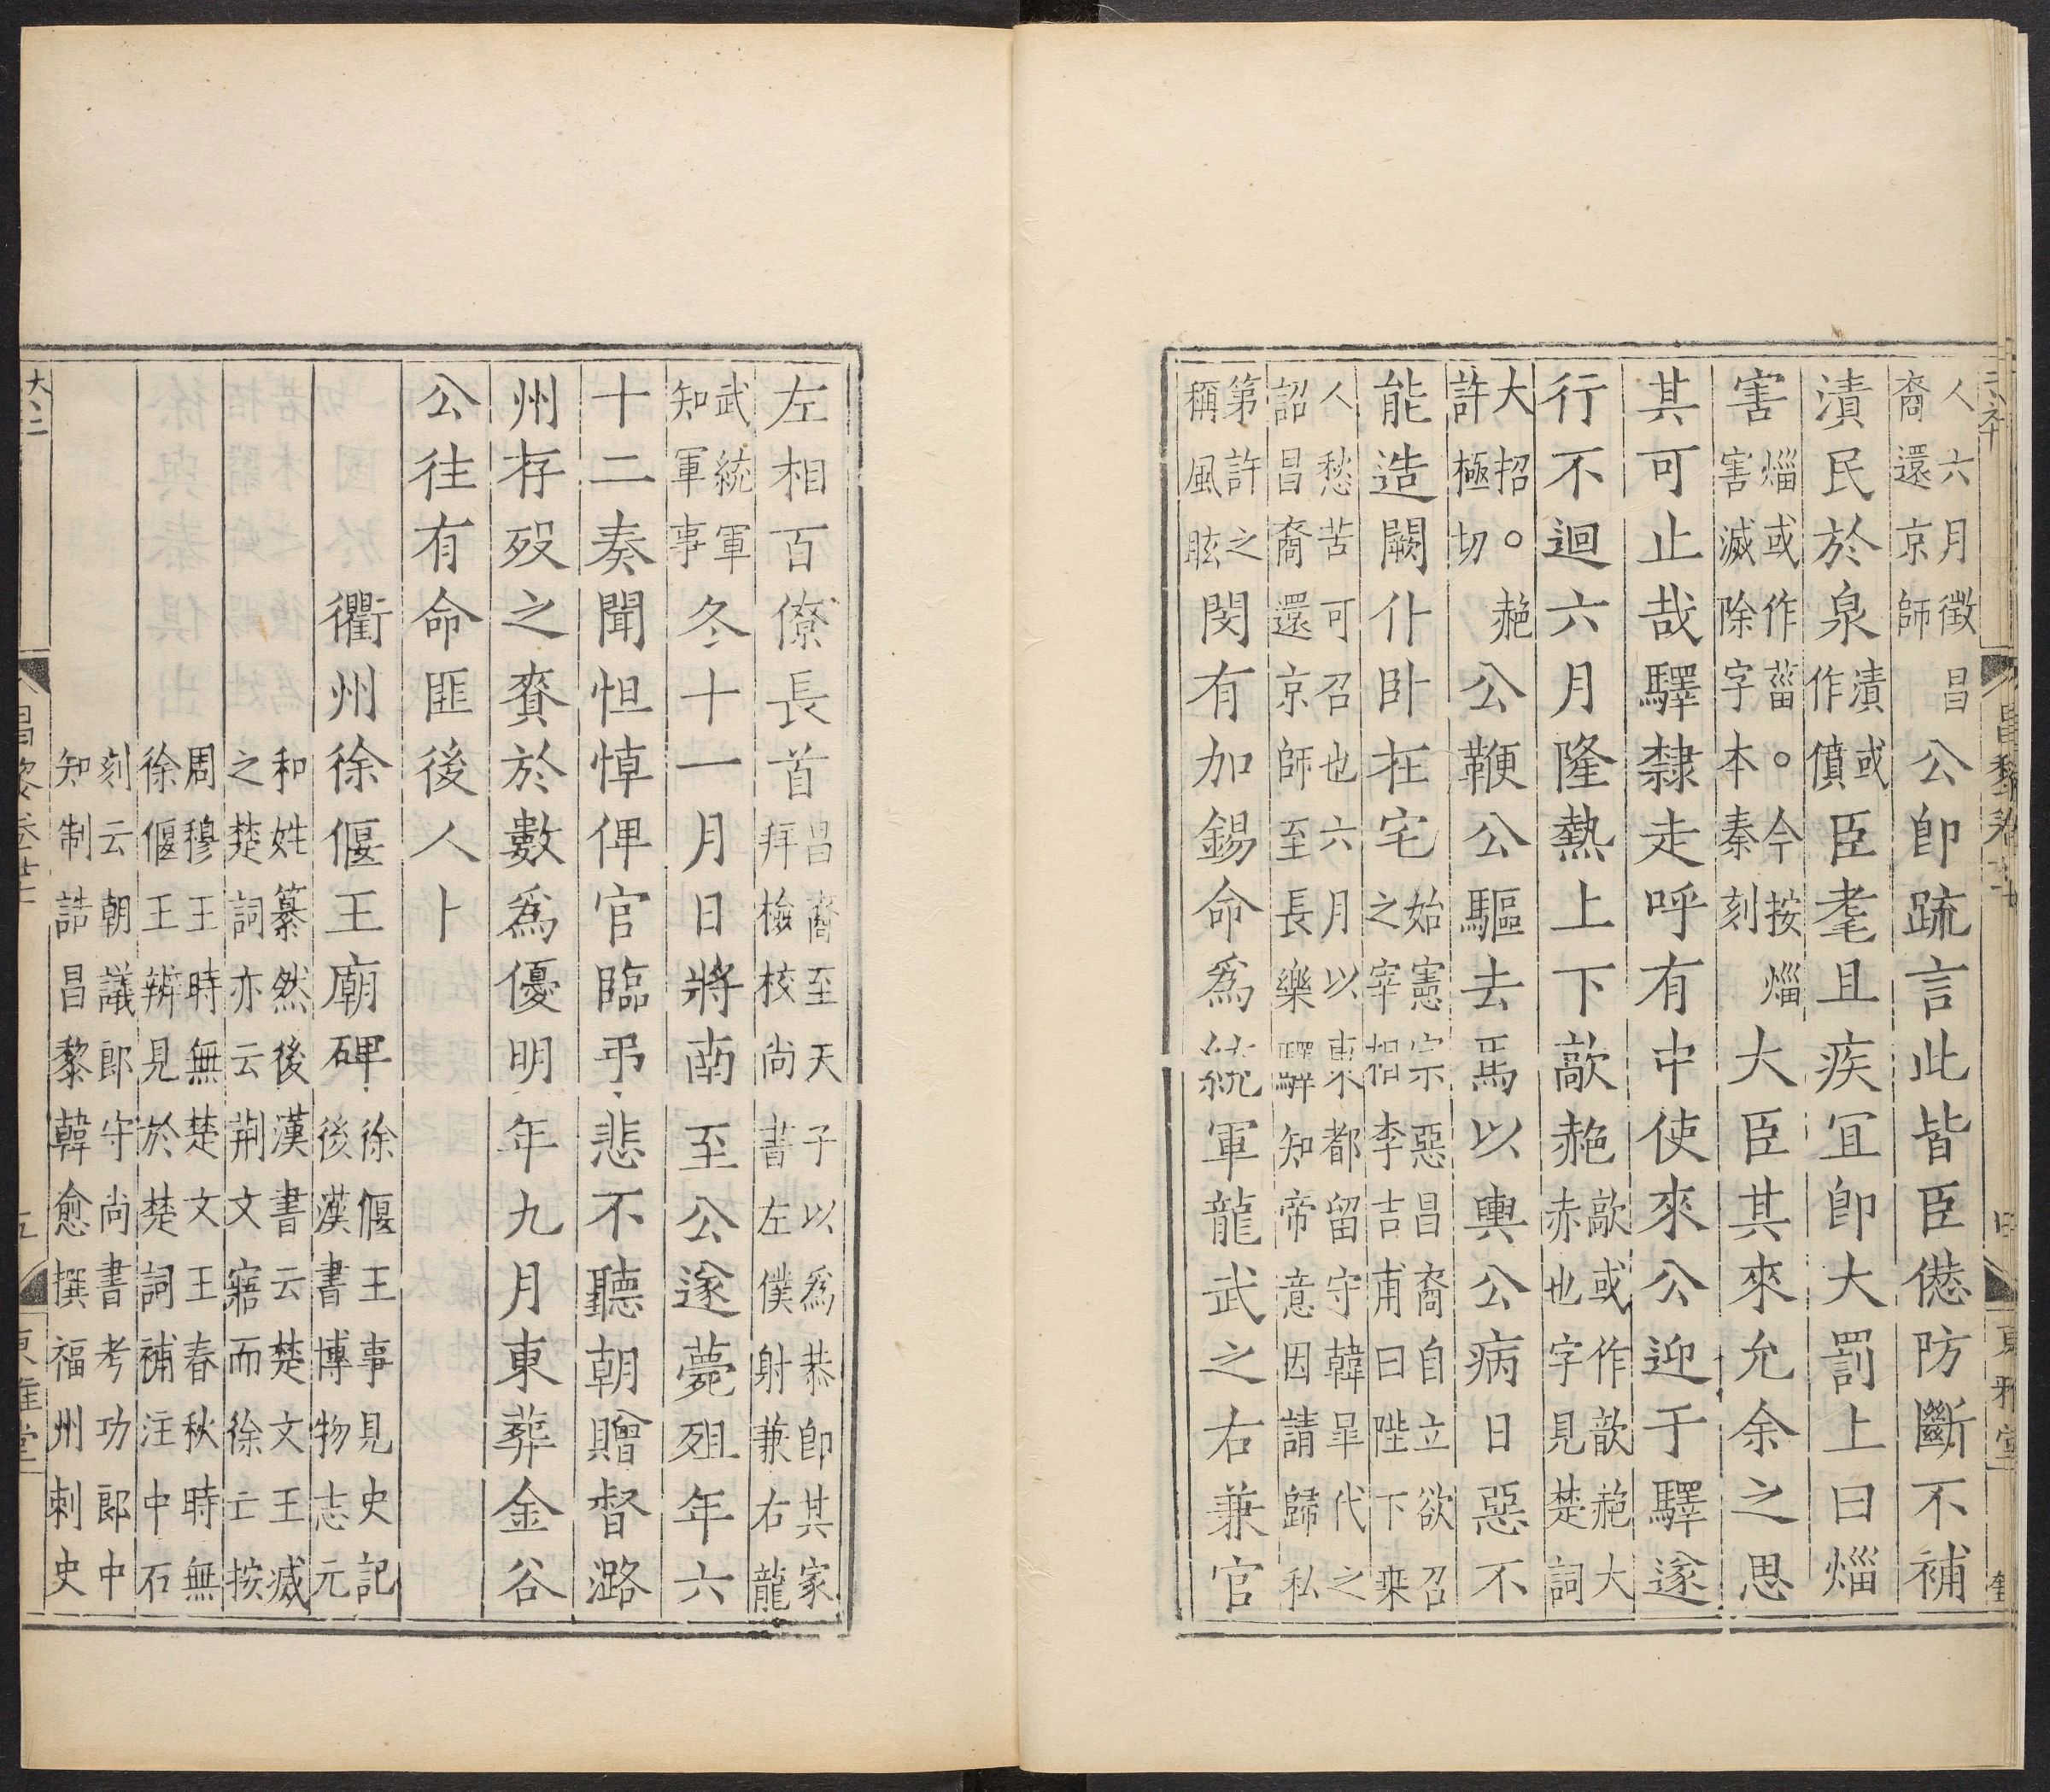 人六月徵昌
裔還京師
公卽䟽言此皆臣僽防斷不補
漬民於泉漬或作僨臣耄且疾宜卽大罰上曰㷋
害㷋或作菑。今按㷋
害滅除字本秦刻
大臣其來允余之思
其可止哉驛隸走呼有中使來公迎于驛遂
行不迴六月隆熱上下歊赩
歊或作歊赩大
赤也字見楚詞
大招。赩
許極切
公鞭公驅去馬以輿公病日惡不
能造闕仆卧在宅
始憲宗惡昌裔自立欲召
之宰相李吉甫曰陛下來
人愁苦可召也六月以東都留守韓皋代之
詔昌裔還京師至長樂驛知帝意因請歸私
第許之
稱風眩
閔有加錫命爲統軍龍武之右兼官
左相百僚長首
昌裔至天子以爲恭卽其家
拜檢校尚書左僕射兼右龍
武統軍
知軍事
冬十一月日將南至公遂薨殂年六
十二奏聞怛悼俾官臨弔悲不聽朝贈督潞
州存歿之賚於數爲優明年九月東葬金谷
公往有命匪後人卜
衢州徐偃王廟碑
徐偃王事見史記
後漢書博物志元
和姓纂然後漢書云楚文王滅
之楚詞亦云荆文寤而徐亡按
周穆王王時無楚文王春秋時無
徐偃王辨見於楚詞補注中石
刻云朝議郎守尚書考功郎中
知制誥昌黎韓愈撰福州刺史